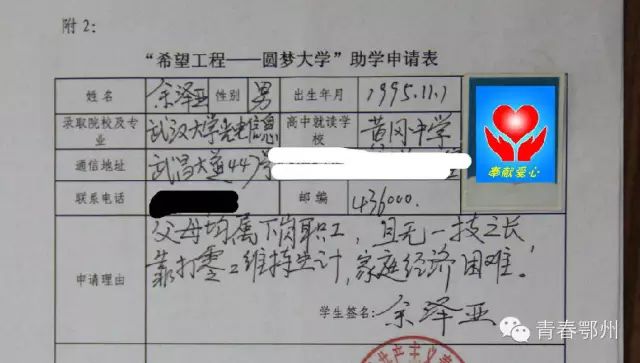 附2：
“希望工程——圆梦大学”助学申请表
姓名 余泽亚 性别 男 出生年月 1995.11.1
录取院校及专业 武汉大学光电信息 高中就读学校 黄冈中学
通信地址 武昌大道447号
联系电话 邮编 436000.
申请理由 父母均属下岗职工，且无一技之长
靠打零工维持生计，家庭经济困难！
学生签名：余泽亚
奉献爱心
青春鄂州
共产主义青